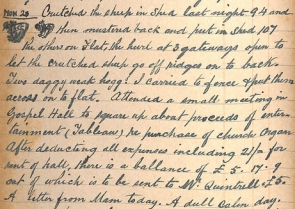 MON 20 Crutched the sheep in shed last night 94 and
then mustered back and put in shed 107
the others on flat, the hurl at 3 gateways open to
let the crutched sheep go off ridges on to back.
Two daggy weak hogg! I carried to fence & put them
across on to flat. Attended a small meeting in
Gospel Hall to square up about proceeds of enter-
tainment (Tableau) re purchase of church Organ
After deducting all expenses including 21/- for
rent of hall, there is a ballance of £5. 17. 9
out of which is to be sent to Mr £5.
A letter from Mam today. A dull calm day.